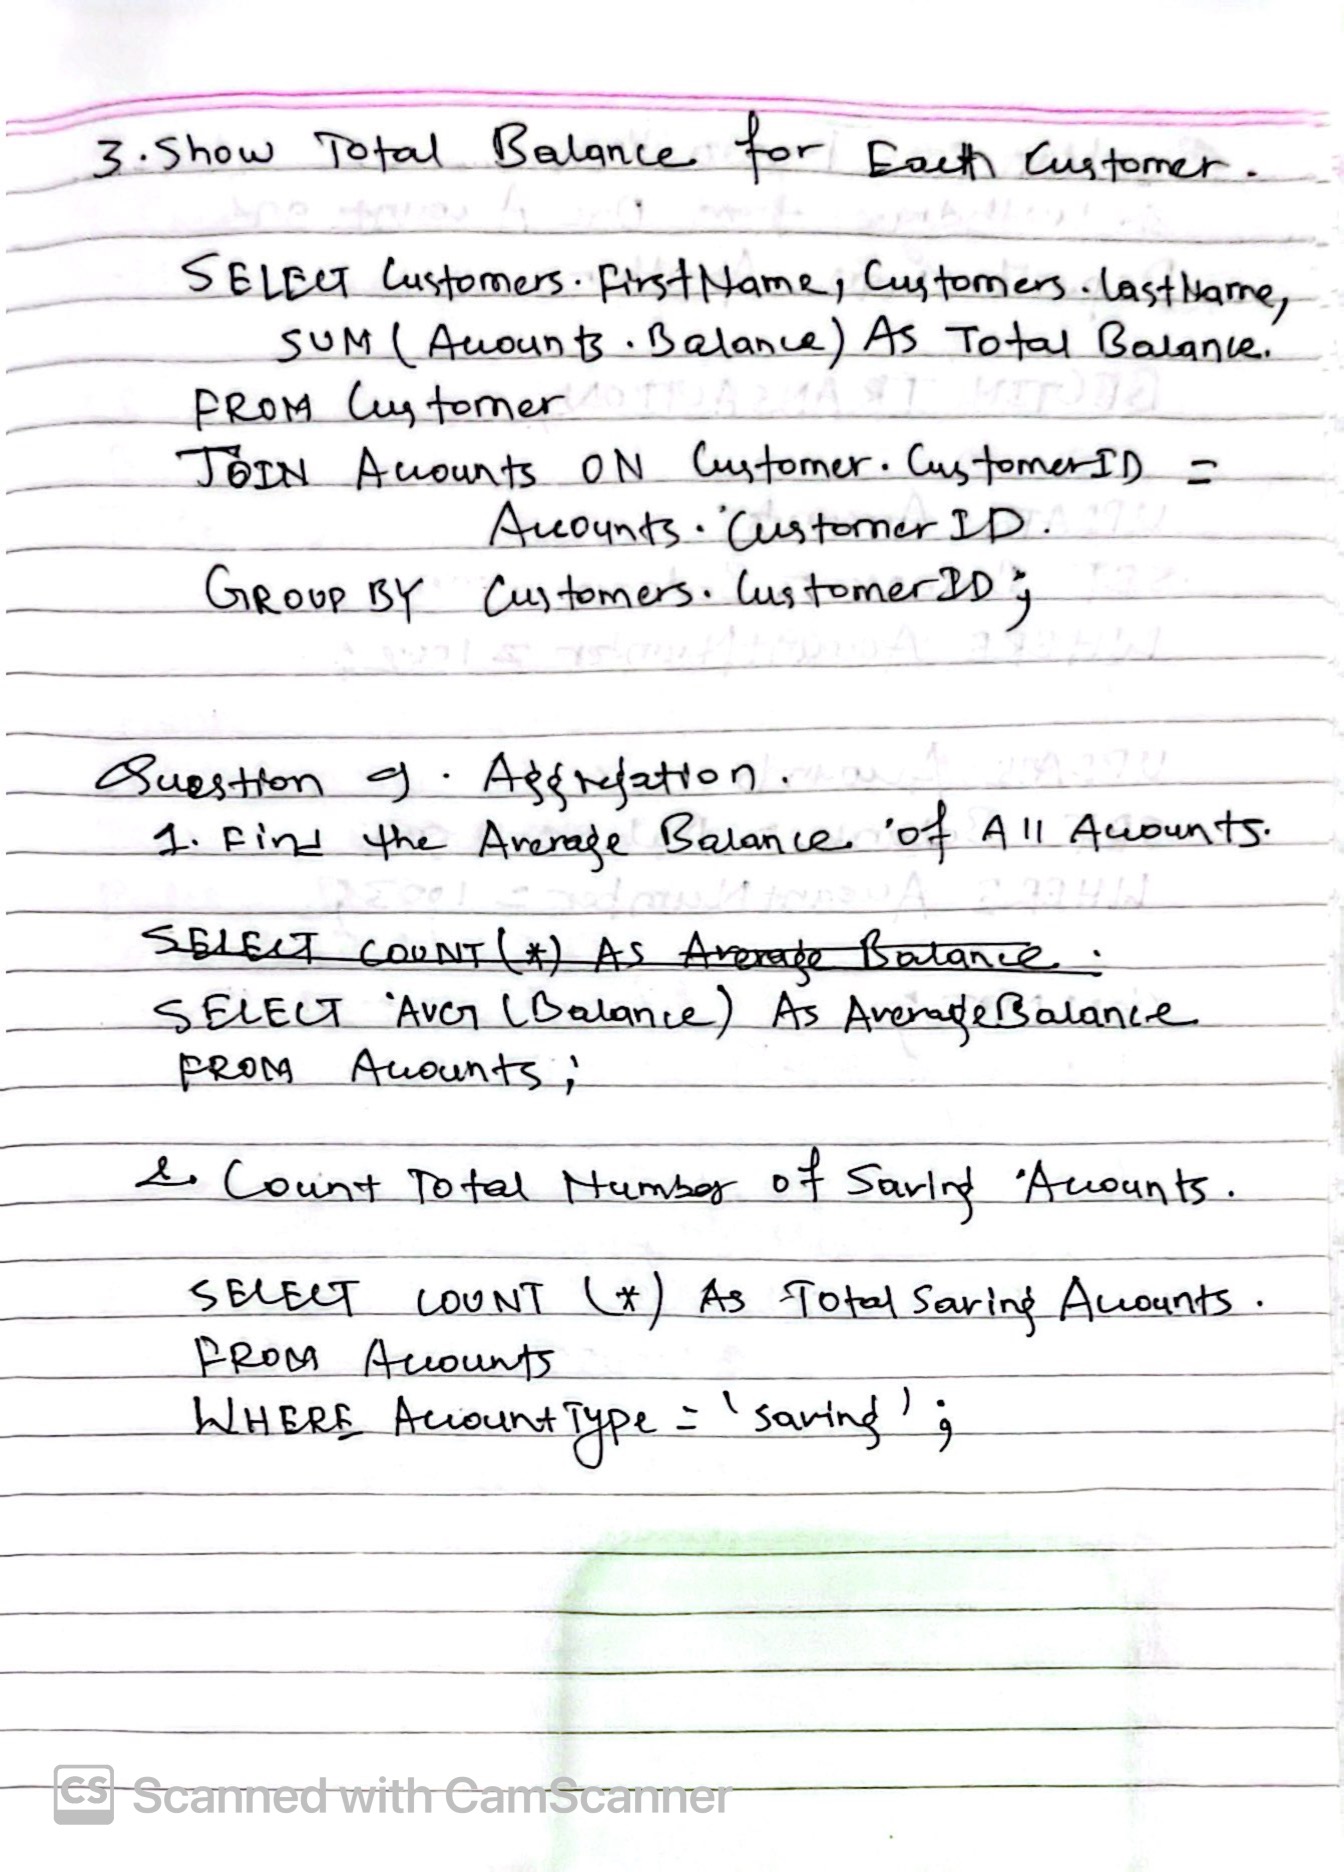 3. Show Total Balance for Each Customer.
SELECT Customers.FirstName, Customers.LastName,
SUM (Accounts.Balance) AS Total Balance.
FROM Customer
JOIN Accounts ON Customer.CustomerID =
Accounts.CustomerID.
GROUP BY Customers.CustomerID;
Question 9. Aggregation.
1. Find the Average Balance of All Accounts.
SELECT COUNT(*) AS Average Balance.
SELECT AVG (Balance) AS AverageBalance
FROM Accounts;
2. Count Total Number of Saving Accounts.
SELECT COUNT (*) AS Total Saving Accounts.
FROM Accounts
WHERE AccountType = 'saving';
CS Scanned with CamScanner